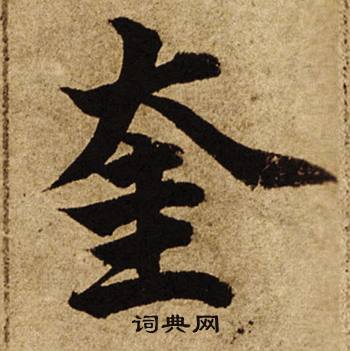 奎
词典网